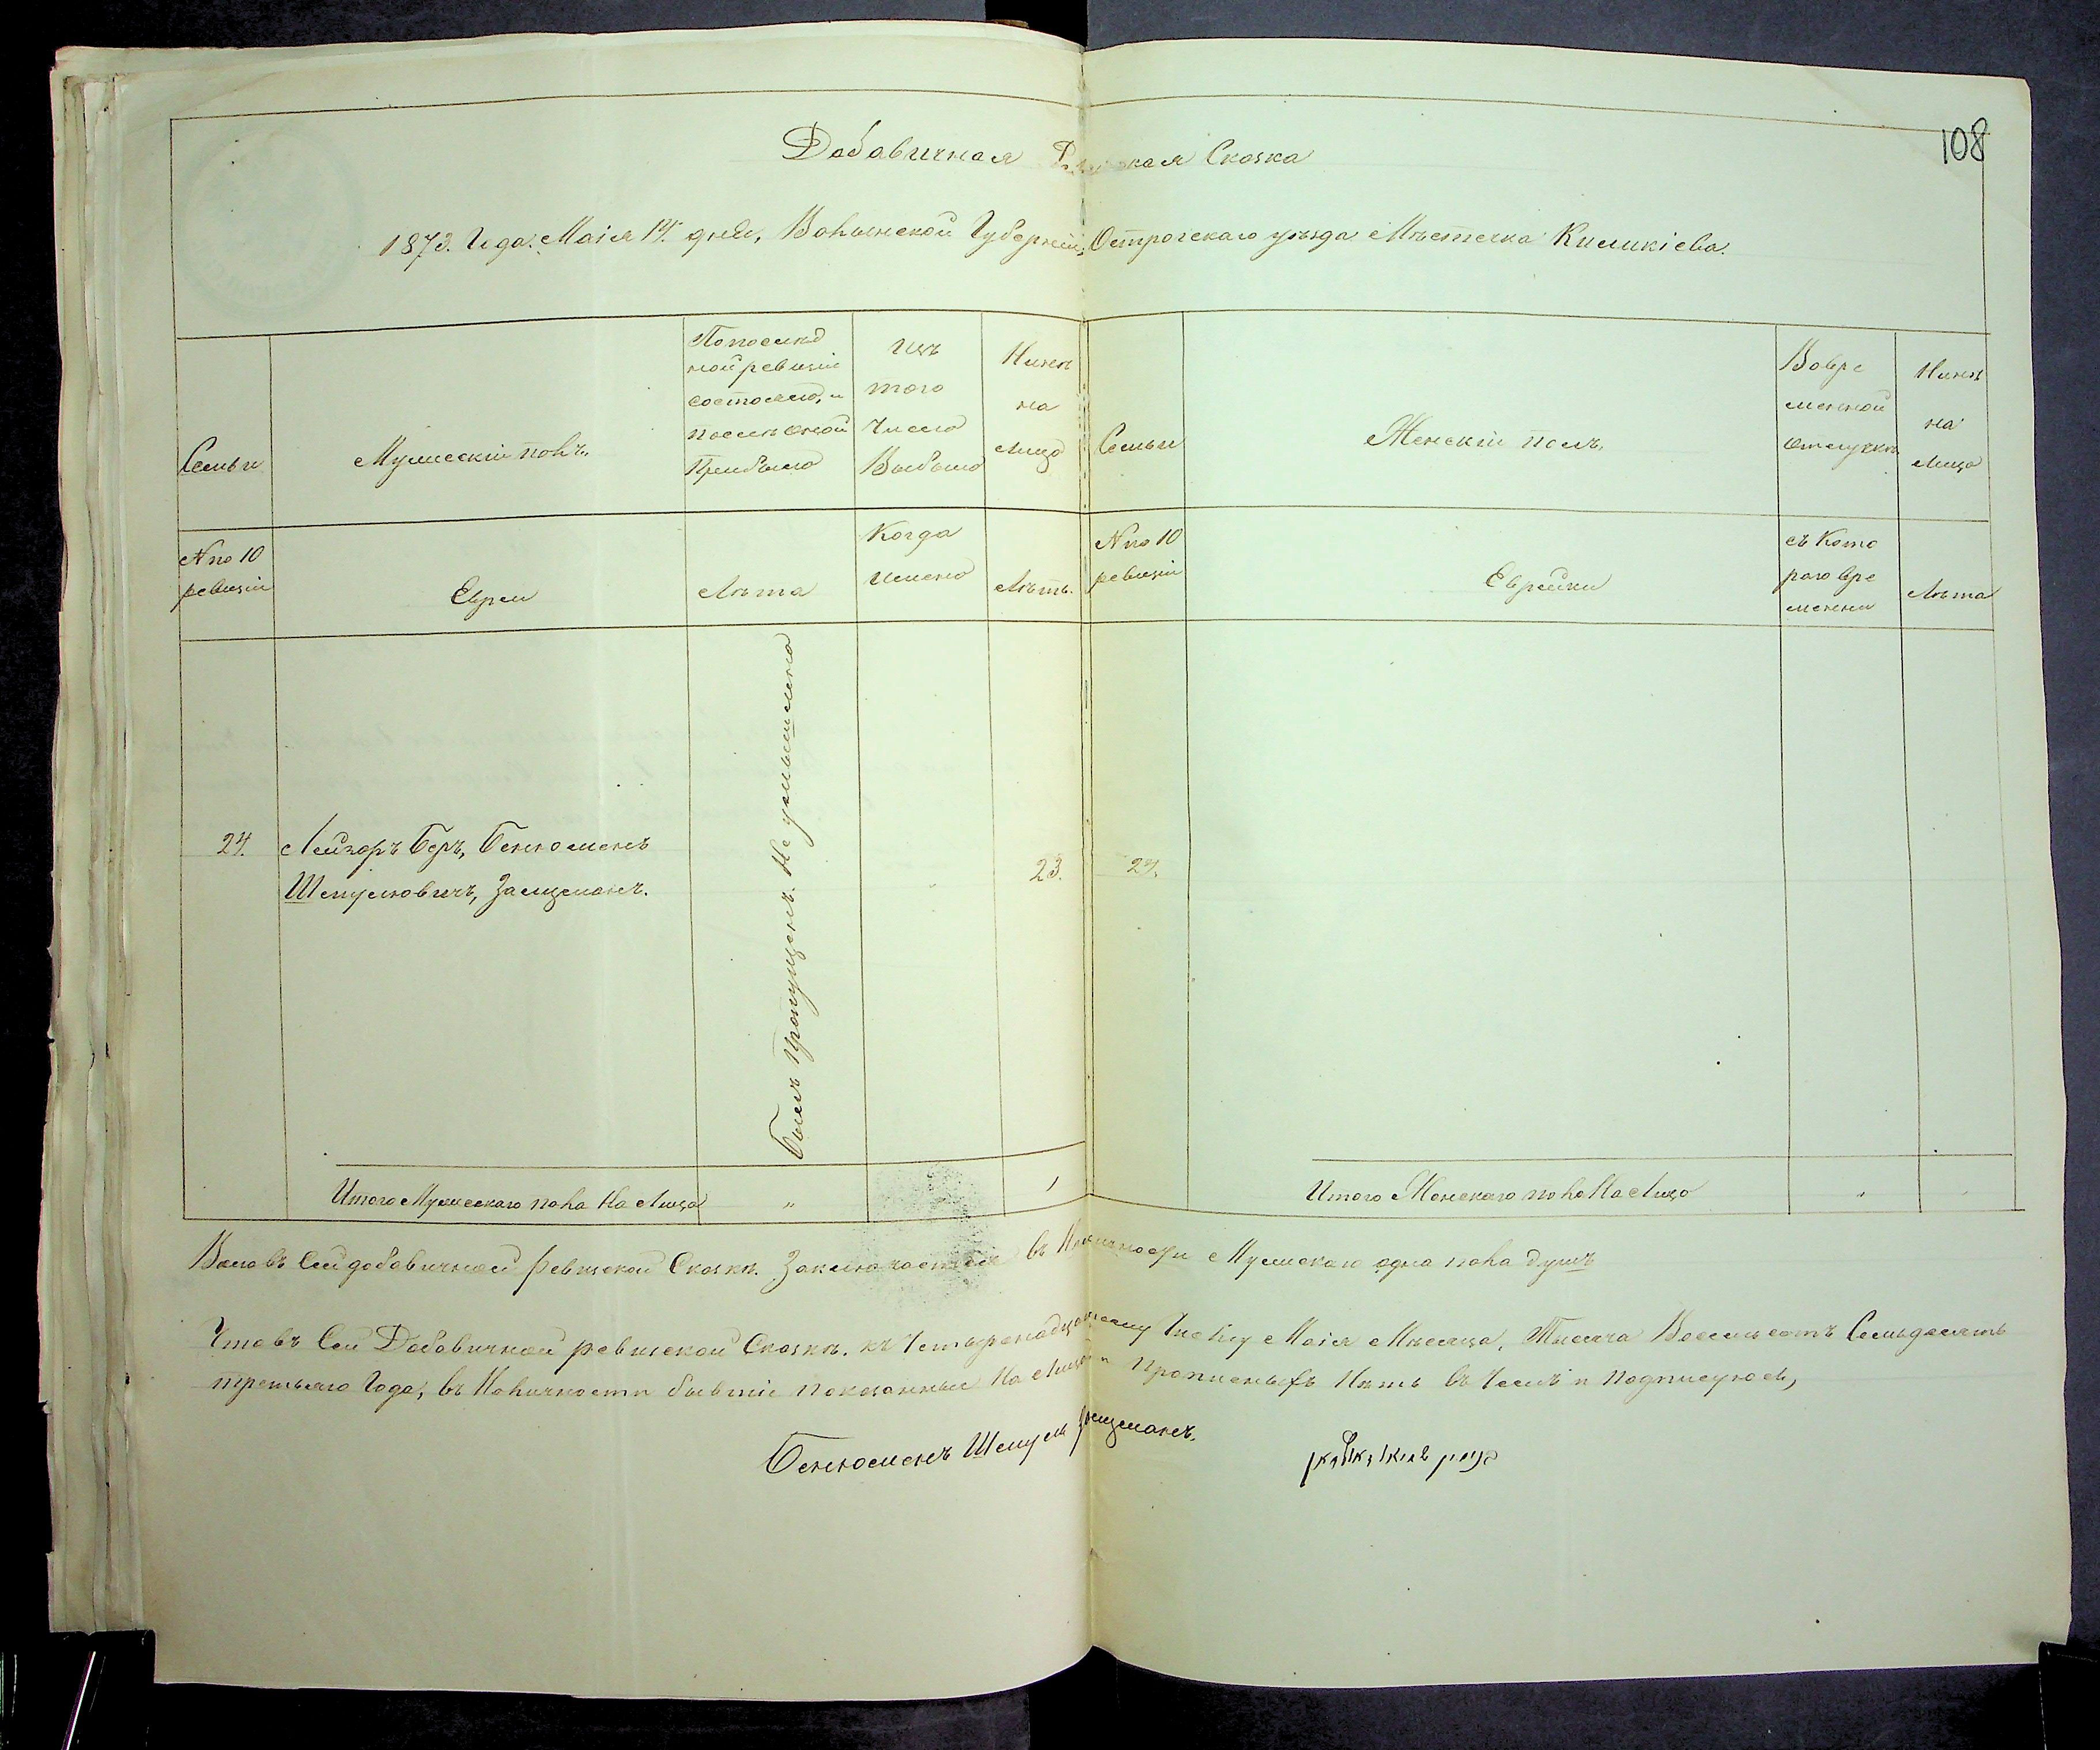 108
Добавичная Ревизская Сказка
1873. Года. Маія 14. дня, Волынской Губерніи, Острогскаго уѣзда Мѣстечка Киликіева.
Семьи
Мужескій полъ.
По послѣд
ной ревизіи
состояло, и
послѣ оной
Прибыло
Изъ
того
Числа
Выбыло
Нынѣ
на
Лицо
Семьи
Женскій полъ.
Вовре
менной
отлучкѣ
Нынѣ
на
Лицо
№ по 10
ревизіи
Евреи
Лѣта
Когда
именно
Лѣтъ.
№ по 10
ревизіи
Еврейки
съ Кото
раго вре
менни
Лѣта
24.
Лейзоръ Беръ, Бенюменъ
Шмулювичъ, Залцманъ.
Былъ Пропущенъ. Не умышлено
23.
24.
Итого Мужескаго пола На Лицо
"
1
Итого Женскаго пола На Лицо
"
"
Всего въ Сей добавичной Ревизской Сказкѣ. Заключается въ Наличности Мужскаго одна пола душъ
Что въ Сей Добавичной ревизской Сказкѣ. къ Четыренадцатому Числу Маія Мѣсяца, Тысяча Восемьсотъ Семьдесятъ
третьяго Года, въ Наличности бывшіе показанные На Лицо и Прописныхъ Нѣтъ въ Чемъ и Подписуюсь,
Бенюменъ Шмуль Залцманъ.
בנימן שמואל זאלצמאן